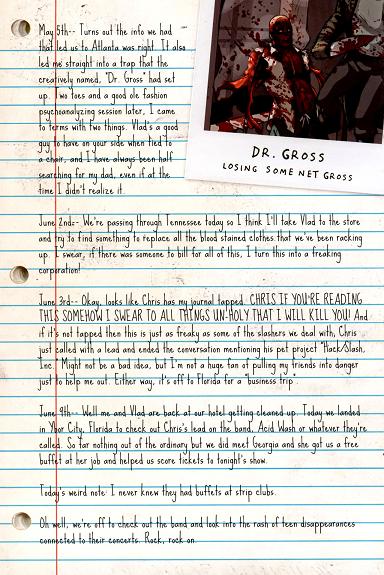 May 5th-- Turns out the info we had
that led us to Atlanta was right. It also
led me straight into a trap that the
creatively named, "Dr. Gross" had set
up. Two toes and a good ole fashion
psychoanalyzing session later, I came
to terms with two things. Vlad's a good
guy to have on your side when tied to
a chair, and I have always been half
searching for my dad, even if at the
time I didn't realize it.
DR. GROSS
LOSING SOME NET GROSS
June 2nd-- We're passing through Tennessee today so I think I'll take Vlad to the store
and try to find something to replace all the blood stained clothes that we've been racking
up. I swear, if there was someone to bill for all of this, I turn this into a freaking
corporation!
June 3rd-- Okay, looks like Chris has my journal tapped. CHRIS IF YOU'RE READING
THIS SOMEHOW I SWEAR TO ALL THINGS UN-HOLY THAT I WILL KILL YOU! And
if it's not tapped then this is just as freaky as some of the slashers we deal with, Chris
just called with a lead and ended the conversation mentioning his pet project "Hack/Slash,
Inc." Might not be a bad idea, but I'm not a huge fan of pulling my friends into danger
just to help me out. Either way, it's off to Florida for a "business trip".
June 9th-- Well me and Vlad are back at our hotel getting cleaned up. Today we landed
in Ybor City, Florida to check out Chris's lead on the band, Acid Wash or whatever they're
called. So far nothing out of the ordinary but we did meet Georgia and she got us a free
buffet at her job and helped us score tickets to tonight's show.
Today's weird note: I never knew they had buffets at strip clubs.
Oh well, we're off to check out the band and look into the rash of teen disappearances
connected to their concerts. Rock, rock on.